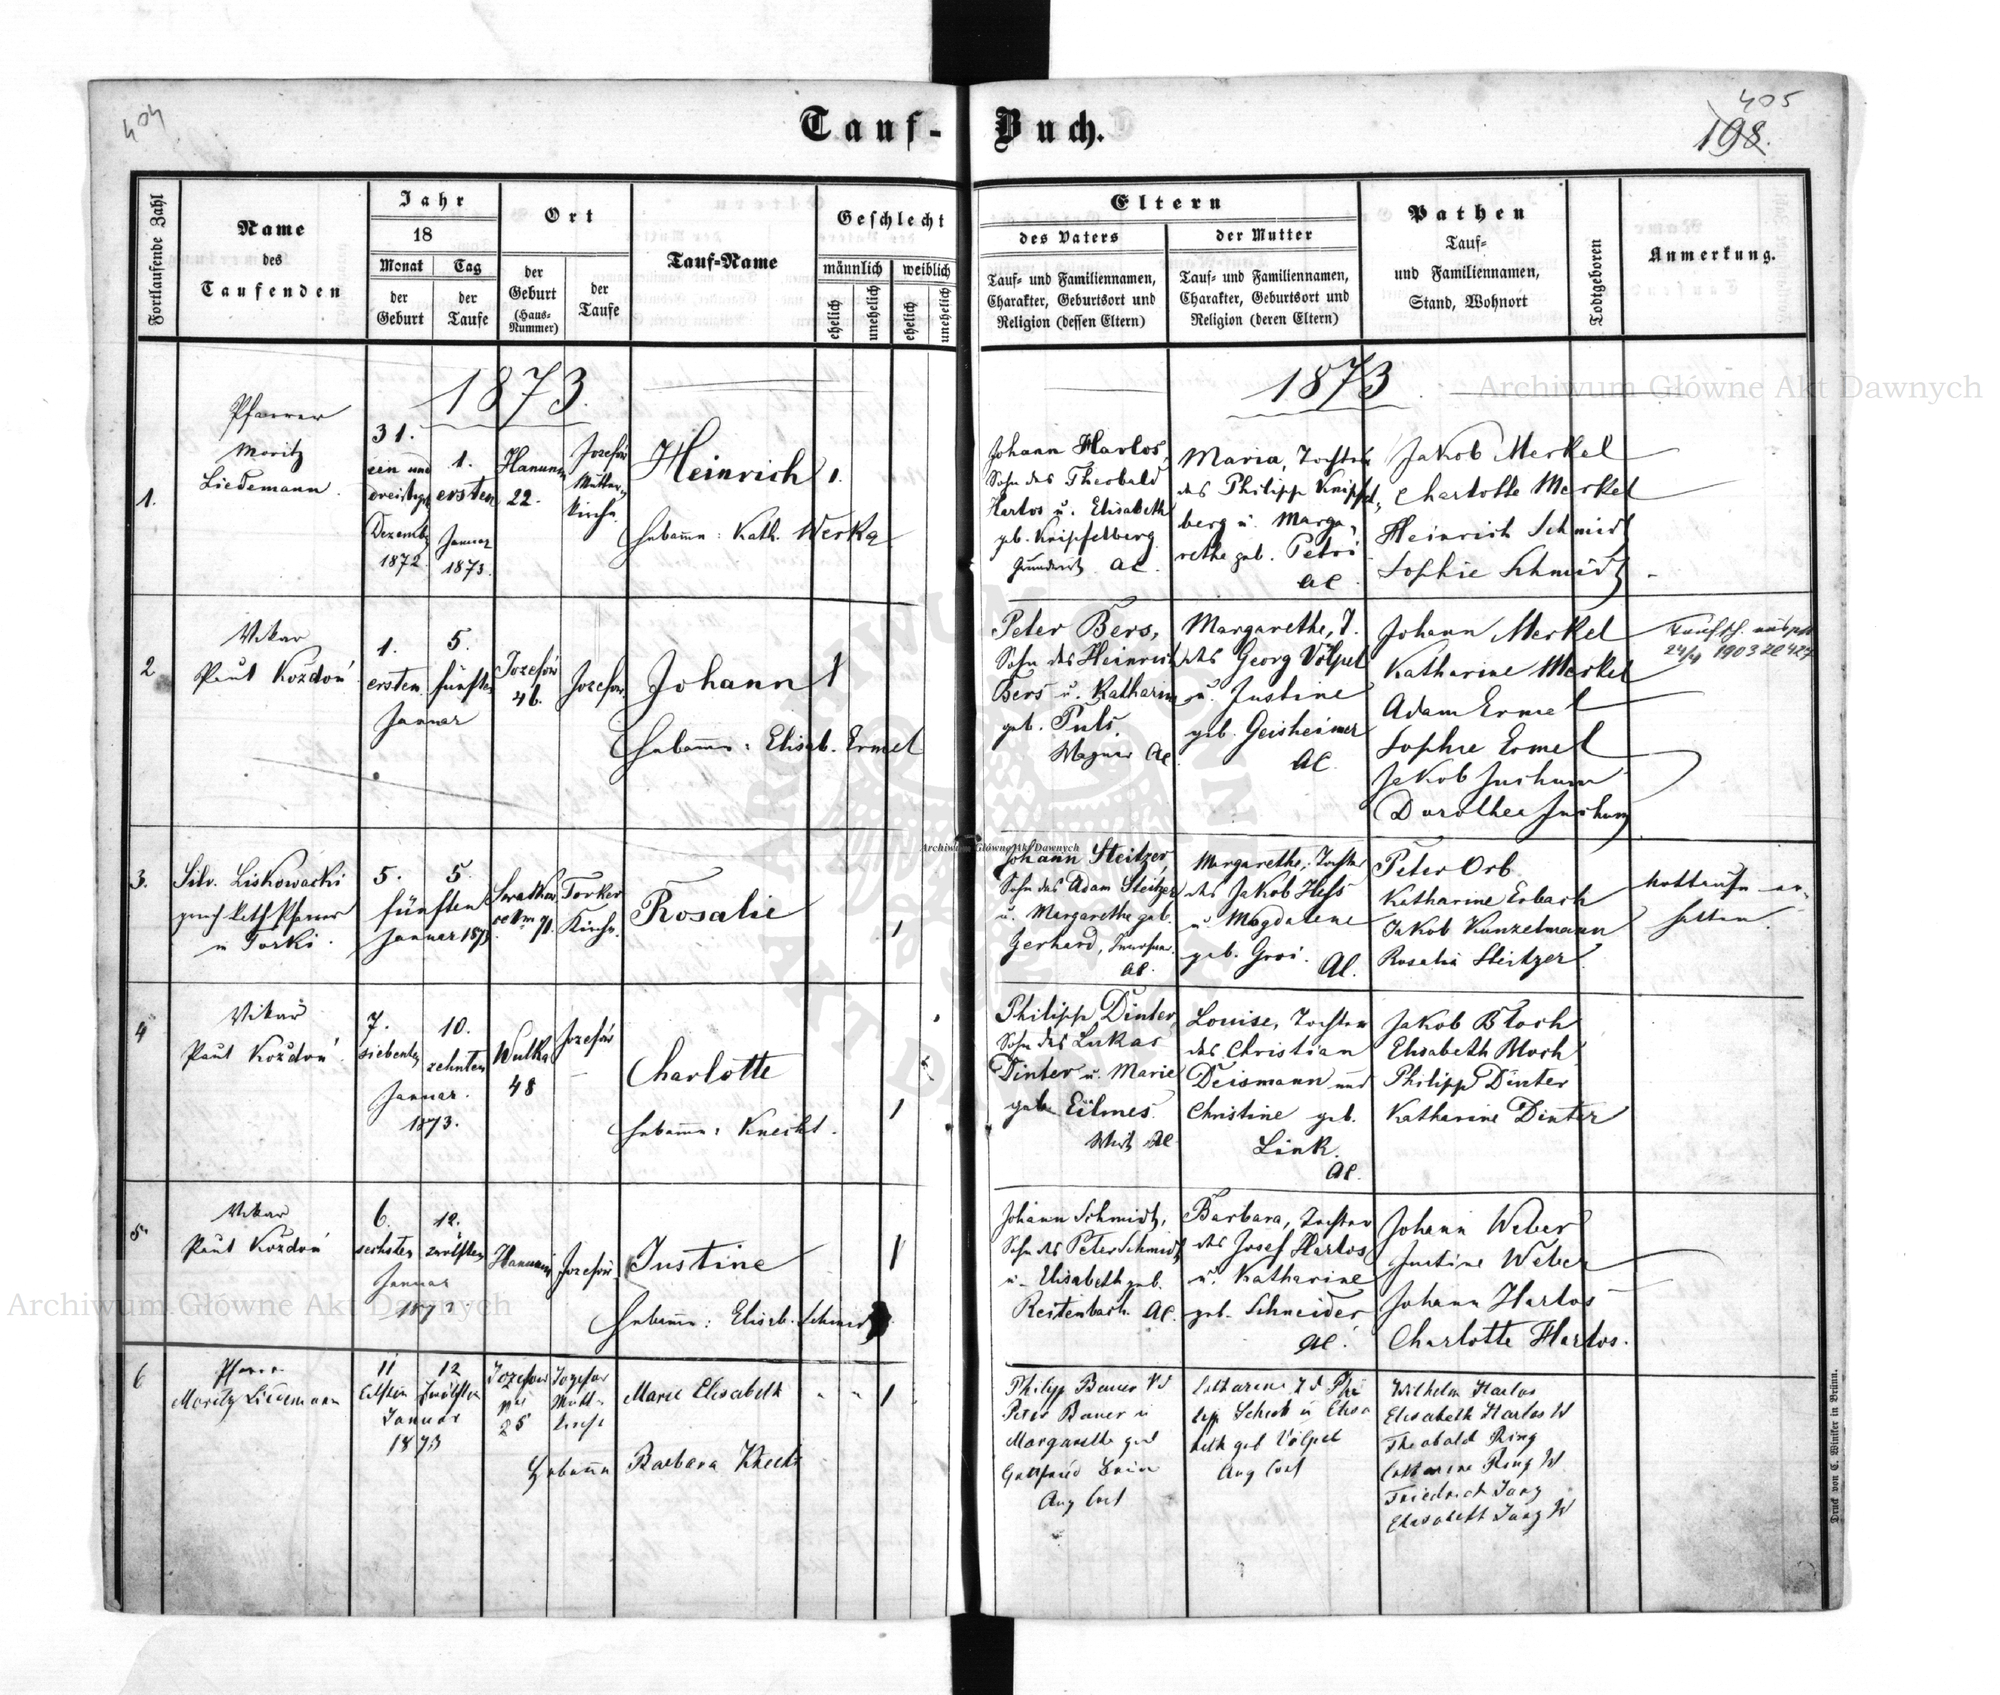 404
405
198.
Tauf-Buch.
Fortlaufende Zahl
Name
des
Taufenden
Jahr
18
Monat
Tag
der
Geburt
der
Taufe
Ort
der
Geburt
(Haus-
Nummer)
der
Taufe
Tauf-Name
Geschlecht
männlich
weiblich
ehelich
unehelich
ehelich
unehelich
Eltern
des Vaters
der Mutter
Tauf- und Familiennamen,
Charakter, Geburtsort und
Religion (dessen Eltern)
Tauf- und Familiennamen,
Charakter, Geburtsort und
Religion (deren Eltern)
Pathen
Tauf-
und Familiennamen,
Stand, Wohnort
Todtgeboren
Anmerkung.
1873.
1873
1.
Pfarrer
Moritz
Liedemann.
31.
ein und
dreißigst
Dezemb
1872
1.
ersten
Januar
1873.
Hanunin
22.
Josefów
Mutter-
kirche.
Heinrich
1.
Hebamme: Kath. Werka
Johann Harlos,
Sohn des Theobald
Harlos u. Elisabeth
geb. Knipfelberg
Grundwirt AC.
Maria, Tochter
des Philipp Knipfel-
berg u. Marga-
rethe geb. Petri
AC.
Jakob Merkel
Charlotte Merkel
Heinrich Schmidt
Sophie Schmidt
2
Vikar
Paul Kozdoń
1.
ersten
5.
fünften
Januar
Jozefów
46.
Jozefow
Johann
1
Hebamme: Elisab. Ermel
Peter Bers,
Sohn des Heinrich
Bers u. Katharine
geb. Puls.
Wagner AC
Margarethe, T.
des Georg Völpel
u. Justine
geb. Geisheimer
AC.
Johann Merkel
Katharine Merkel
Adam Ermel
Sophie Ermel
Jakob Juchum
Dorothea Juchum
Taufsch.
24/4 1903 Zl 427
3.
Silv. Liskowacki
griech. kath. Pfarrer
in Torki.
5.
5.
fünften
Januar 1873
Torker
Kirche.
Rosalie
1
Johann Steitzer,
Sohn des Adam Steitzer
u. Margarethe geb.
Gerhard,
AC.
Margarethe, Tochter
des Jakob Hess
u. Magdalene
geb. Groi.
AC.
Peter Orb
Katharine Erbach
Jakob Kunzelmann
Rosalia Steitzer.
Nottaufe er-
halten.
4
Vikar
Paul Kozdoń.
7.
siebenten
10.
zehnten
Januar.
1873.
Wulka
48
Jozefów
Charlotte
1
Hebamme: Knecht.
Philipp Dinter,
Sohn des Lukas
Dinter u. Marie
geb. Eilmes.
Wirt AC
Louise, Tochter
des Christian
Deismann und
Christine geb.
Link.
AC.
Jakob Bloch
Elisabeth Bloch
Philipp Dinter
Katharine Dinter
5.
Vikar
Paul Kozdoń
6.
sechsten
12.
zwölften
Januar
1873
Hanunin
Jozefów
Justine
1
Hebamme: Elisab. Schmidt
Johann Schmidt,
Sohn des Peter Schmidt
u. Elisabeth geb.
Reitenbach. AC.
Barbara, Tochter
des Josef Harlos
u. Katharine
geb. Schneider
AC.
Johann Weber
Justine Weber
Johann Harlos
Charlotte Harlos.
6
Pfarrer
Moritz Liedemann
11
Eilften
12
Zwölften
Januar
1873
Jozefow
Nr
25
Jozefow
Mutt-
kirche
Marie Elisabeth
1
Hebamme Barbara Knecht
Philipp Bauer Sd
Peter Bauer u
Margarethe geb
Gottfried
Aug Conf
Catharine T d Phi
lipp Scherb u Elisa
beth geb Völpel
Aug Conf
Wilhelm Harlos
Elisabeth Harlos W
Theobald Ring
Catharine Ring W
Friedrich Jung
Elisabeth Jung W
Druck von C. Winiker in Brünn.
Archiwum Główne Akt Dawnych
Archiwum Główne Akt Dawnych
Archiwum Główne Akt Dawnych
ARCHIWUM GŁÓWNE AKT DAWNYCH